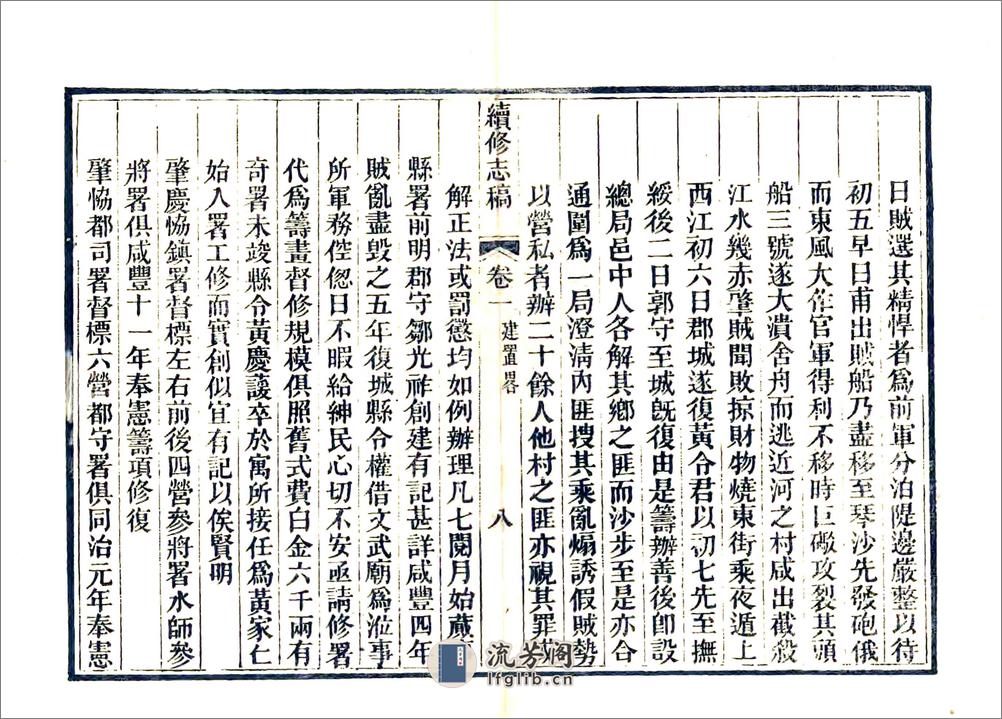 日賊選其精悍者為前軍分泊隄邊嚴整以待
初五早日甫出賊船乃盡移至琴沙先發砲俄
而東風大作官軍得利不移時巨礮攻裂其頭
船三號遂大潰舍舟而逃近河之村咸出截殺
江水幾赤肇賊聞敗掠財物燒東街乘夜遁上
西江初六日郡城遂復黃令君以初七先至撫
綏後二日郭守至城既復由是籌辦善後卽設
總局邑中人各解其鄉之匪而沙步至是亦合
通圍為一局澄淸內匪搜其乘亂煽誘假賊勢
以營私者辦二十餘人他村之匪亦視其罪或
續修志稿
卷一
建置畧
八
解正法或罰懲均如例辦理凡七閱月始蕆事
縣署前明郡守鄒光祚創建有記甚詳咸豐四年
賊亂盡毀之五年復城縣令權借文武廟為涖事
所軍務倥偬日不暇給紳民心切不安亟請修署
代為籌畫督修規模俱照舊式費白金六千兩有
奇署未竣縣令黃慶護卒於寓所接任為黃家仁
始入署工修而實創似宜有記以俟賢明
肇慶協鎮署督標左右前後四營參將署水師參
將署俱咸豐十一年奉憲籌項修復
肇協都司署督標六營都守署俱同治元年奉憲
流芳閣
lfglib.cn